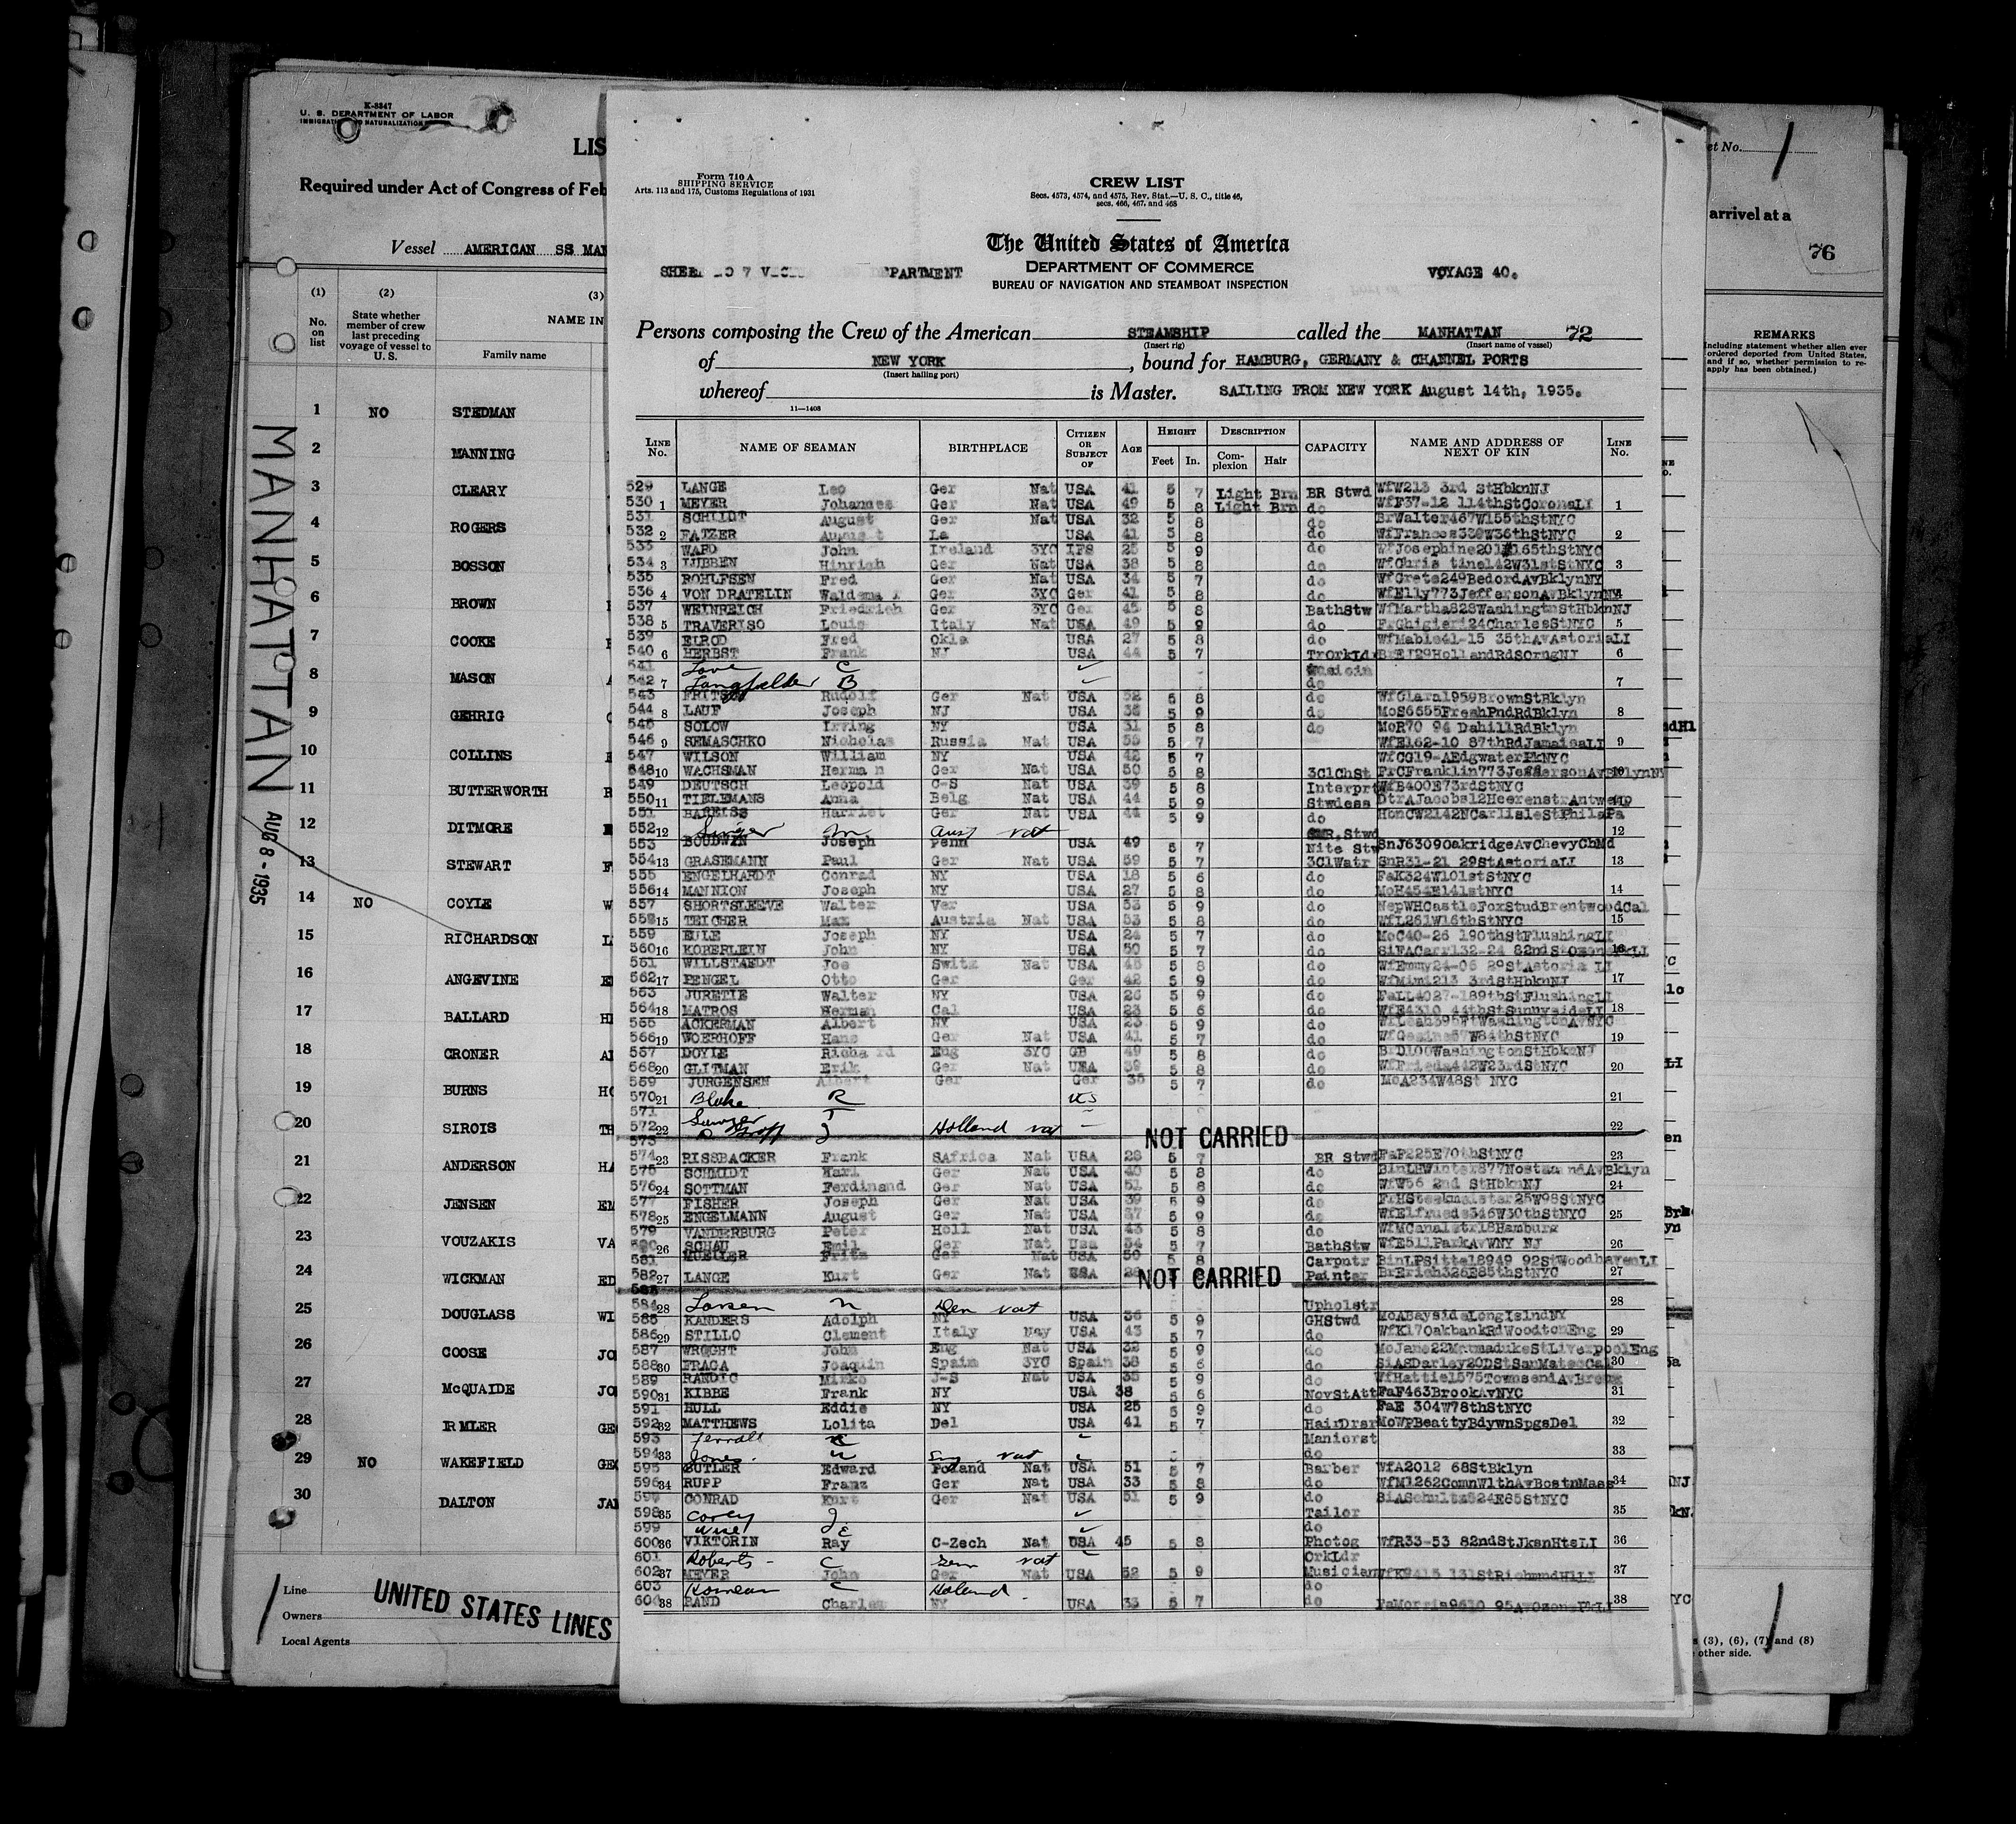 K-8847
U. S. DEPARTMENT OF LABOR
LIS
Required under Act of Congress of Feb
Vessel AMERICAN SS MAN
(1) (2) (3)
No. on list
State whether member of crew last preceding voyage of vessel to U. S.
NAME IN
Family name
1 NO STEDMAN
2 MANNING
3 CLEARY
4 ROGERS
5 BOSSON
6 BROWN
7 COOKE
8 MASON
9 GEHRIG
10 COLLINS
11 BUTTERWORTH B
12 DITMORE
13 STEWART
14 NO COYLE W
15 RICHARDSON
16 ANGEVINE
17 BALLARD
18 CRONER
19 BURNS
20 SIROIS TH
21 ANDERSON HA
22 JENSEN EM
23 VOUZAKIS VA
24 WICKMAN ED
25 DOUGLASS WI
26 COOSE JO
27 McQUAIDE JO
28 IRMLER GE
29 NO WAKEFIELD GE
30 DALTON JA
MANHATTAN AUG 8 - 1935
Line
Owners
Local Agents
UNITED STATES LINES
Form 710 A
SHIPPING SERVICE
Arts. 113 and 175, Customs Regulations of 1931
CREW LIST
Secs. 4573, 4574, and 4575, Rev. Stat.—U. S. C., title 46,
secs. 466, 467, and 468
The United States of America
DEPARTMENT OF COMMERCE
BUREAU OF NAVIGATION AND STEAMBOAT INSPECTION
VOYAGE 40.
Persons composing the Crew of the American STEAMSHIP called the MANHATTAN 72
(Insert rig) (Insert name of vessel)
of NEW YORK, bound for HAMBURG, GERMANY & CHANNEL PORTS
(Insert hailing port)
whereof is Master. SAILING FROM NEW YORK August 14th, 1935.
11—1408
LINE No. NAME OF SEAMAN BIRTHPLACE CITIZEN OR SUBJECT OF AGE HEIGHT Feet In. DESCRIPTION Complexion Hair CAPACITY NAME AND ADDRESS OF NEXT OF KIN LINE No.
529 LANGE Leo Ger Nat USA 41 5 7 Light Brn BR Stwd WfW213 3rd StHbknNJ
530 1 MEYER Johannes Ger Nat USA 49 5 8 Light Brn do WfF37-12 114thStCoronaLI 1
531 SCHMIDT August Ger Nat USA 32 5 8 do BrWalter467W155thStNYC
532 2 FATZER August La USA 41 5 8 do WfFrances339W36thStNYC 2
533 WARD John Ireland 3YC IFS 25 5 9 do
534 3 LUBBEN Hinrich Ger Nat USA 38 5 8 do 3
535 ROHLFSEN Fred Ger Nat USA 34 5 7 do WfGrete249BedordAvBklynNY
536 4 VON DRATELIN Ger 3YC Ger 41 5 8 do WfElly773JeffersonAvBklynNY
537 WEINREICH Friedrich Ger 3YC Ger 45 5 8 BathStw WfMartha828WashingtnStHbknNJ
538 5 TRAVERISO Louis Italy Nat USA 49 5 9 do FrGhigieri24CharlesStNYC 5
539 ELROD Fred Okla USA 27 5 8 do WfMabis41-15 35thAvAstoriaLI
540 6 HERBST Frank NJ USA 44 5 7 TrOrkLdr BrEJ29HollandRdSOrngNJ 6
541 Love C
542 7 Langfelder B do 7
543 Rudolf Ger Nat USA 52 5 8 do WfClara1959BrownStBklyn
544 8 LAUF Joseph NJ USA 5 9 do MoS6555FreshPndRdBklyn 8
545 SOLOW Irving NY USA 31 5 8 do MoR70 94 DahillRdBklyn
546 9 SEMASCHKO Nicholas Russia Nat USA 5 7 WfE162-10 87thRdJamaicaLI 9
547 WILSON William NY USA 42 5 7 WfCG19-AEdgwaterPkNYC
548 10 WACHSMAN Herman Ger Nat USA 50 5 8 3ClChSt FrCFranklin773JeffersonAvBklynNY
549 DEUTSCH Leopold C-S Nat USA 39 5 8 Interprt WfB400E73rdStNYC
550 11 TIELEMANS Anna Belg Nat USA 44 5 9 Stwdess DtrAJacobs12HeerenstrAntwerp
551 BAREISS Harriet Ger Nat USA 44 5 9 do HonCW2142NCarlisleStPhilaPa
552 12 Singer M Aust nat 12
553 BOUDWIN Joseph Penn USA 49 5 7 Nite Stw SnJ6309OakridgeAvChevyChMd
554 13 GRASEMANN Paul Ger Nat USA 59 5 7 3ClWatr SnR31-21 29StAstoriaLI 13
555 ENGELHARDT Conrad NY USA 18 5 6 do FaK324W101stStNYC
556 14 MANNION Joseph NY USA 27 5 8 do MoH454E141stNYC 14
557 SHORTSLEEVE Walter Ver USA 33 5 9 do NepWHCastleFoxStudBrentwoodCal
558 15 TEICHER Max Austria Nat USA 53 5 8 do WfL261W16thStNYC 15
559 EULE Joseph NY USA 24 5 7 do MoC40-26 190thStFlushingLI
560 16 KOBERLEIN John NY USA 50 5 7 do
561 WILLSTAEDT Joe Switz Nat USA 45 5 8 do WfEmmy24-06 29StAstoria LI
562 17 PENGEL Otto Ger Ger 42 5 9 do WfMimi213 3rdStHbknNJ 17
563 JURETIE Walter NY USA 26 5 9 do FaLL4027-189thStFlushingLI
564 18 MATROS Herman Cal USA 23 5 6 do WfE4310 44thStSunnysideLI 18
565 ACKERMAN Albert NY USA 23 5 9 do
566 19 WOERHOFF Hans Ger Nat USA 41 5 7 do 19
567 DOYLE Richard Eng 3YC GB 49 5 8 do BrD100WashingtonStHbknNJ
568 20 GLITMAN Erik Ger Nat USA 39 5 8 do WfFrieda442W23rdStNYC 20
569 JURGENSEN Albert Ger Ger 35 5 7 do MoA234W48St NYC
570 21 Blake R US 21
571
572 22 J Holland nat 22
573 NOT CARRIED
574 23 RISSBACKER Frank SAfrica Nat USA 28 5 7 BR Stwd FaF225E70thStNYC 23
575 SCHMIDT Karl Ger Nat USA 40 5 8 do
576 24 SOTTMAN Ferdinand Ger Nat USA 51 5 8 do WfW56 2nd StHbknNJ 24
577 FISHER Joseph Ger Nat USA 39 5 9 do
578 25 ENGELMANN August Ger Nat USA 37 5 9 do WfElfruede346W30thStNYC 25
579 VANDERBURG Peter Holl Nat USA 43 5 8 do WfMCanalstr18Hamburg
580 26 SCHAU Emil Ger Nat USA 34 5 7 BathStw WfE511ParkAvWNY NJ 26
581 MUELLER Fritz Ger Nat USA 50 5 8 Carpntr BinLPSittel8949 92StWoodhavenLI
582 27 LANGE Kurt Ger Nat USA Painter BrErich326E85thStNYC 27
NOT CARRIED
584 28 Larsen N Den nat Upholstr 28
585 KANDERS Adolph NY USA 36 5 9 GHStwd MoABaysideLongIslndNY
586 29 STILLO Clement Italy Nay USA 43 5 7 do WfK17OakbankRdWooltonEng 29
587 WRIGHT John Eng Nat USA 32 5 9 do MoJane22MarmadukeStLiverpoolEng
588 30 FRAGA Joaquin Spain 3YC Spain 38 5 6 do SiASDarley20DStSanMateoCal 30
589 RANDIC Mirko J-S Nat USA 35 5 9 do WfHattie1575TownsendAvBronx
590 31 KIBBE Frank NY USA 38 5 6 NovStAtt FaF463BrookAvNYC 31
591 HULL Eddie NY USA 25 5 9 do FaE 304W78thStNYC
592 32 MATTHEWS Lolita Del USA 41 5 7 HairDrsr MoWPBeattyBdywnSpgsDel 32
593 Manicrst
594 33 Jones nat do 33
595 BUTLER Edward Poland Nat USA 51 5 7 Barber WfA2012 68StBklyn
596 34 RUPP Franz Ger Nat USA 33 5 8 do WfM1262ComnWlthAvBostnMass 34
597 CONRAD Kurt Ger Nat USA 51 5 9 do SiASchultz524E85StNYC
598 35 Corey J Tailor 35
599 Wise do
600 36 VIKTORIN Ray C-Zech Nat USA 45 5 8 Photog WfR33-53 82ndStJksnHtsLI 36
601 Roberts C Ger nat OrkLdr
602 37 MEYER John Ger Nat USA 52 5 9 Musician WfK9415 131StRichmndHlLI 37
603 C Holand do
604 38 RAND Charles NY USA 33 5 7 do FaMorris9610 95AvOzonePkLI 38
et No.
arrival at a
76
REMARKS
(Including statement whether alien ever ordered deported from United States, and if so, whether permission to re-apply has been obtained.)
(3), (6), (7) and (8)
other side.